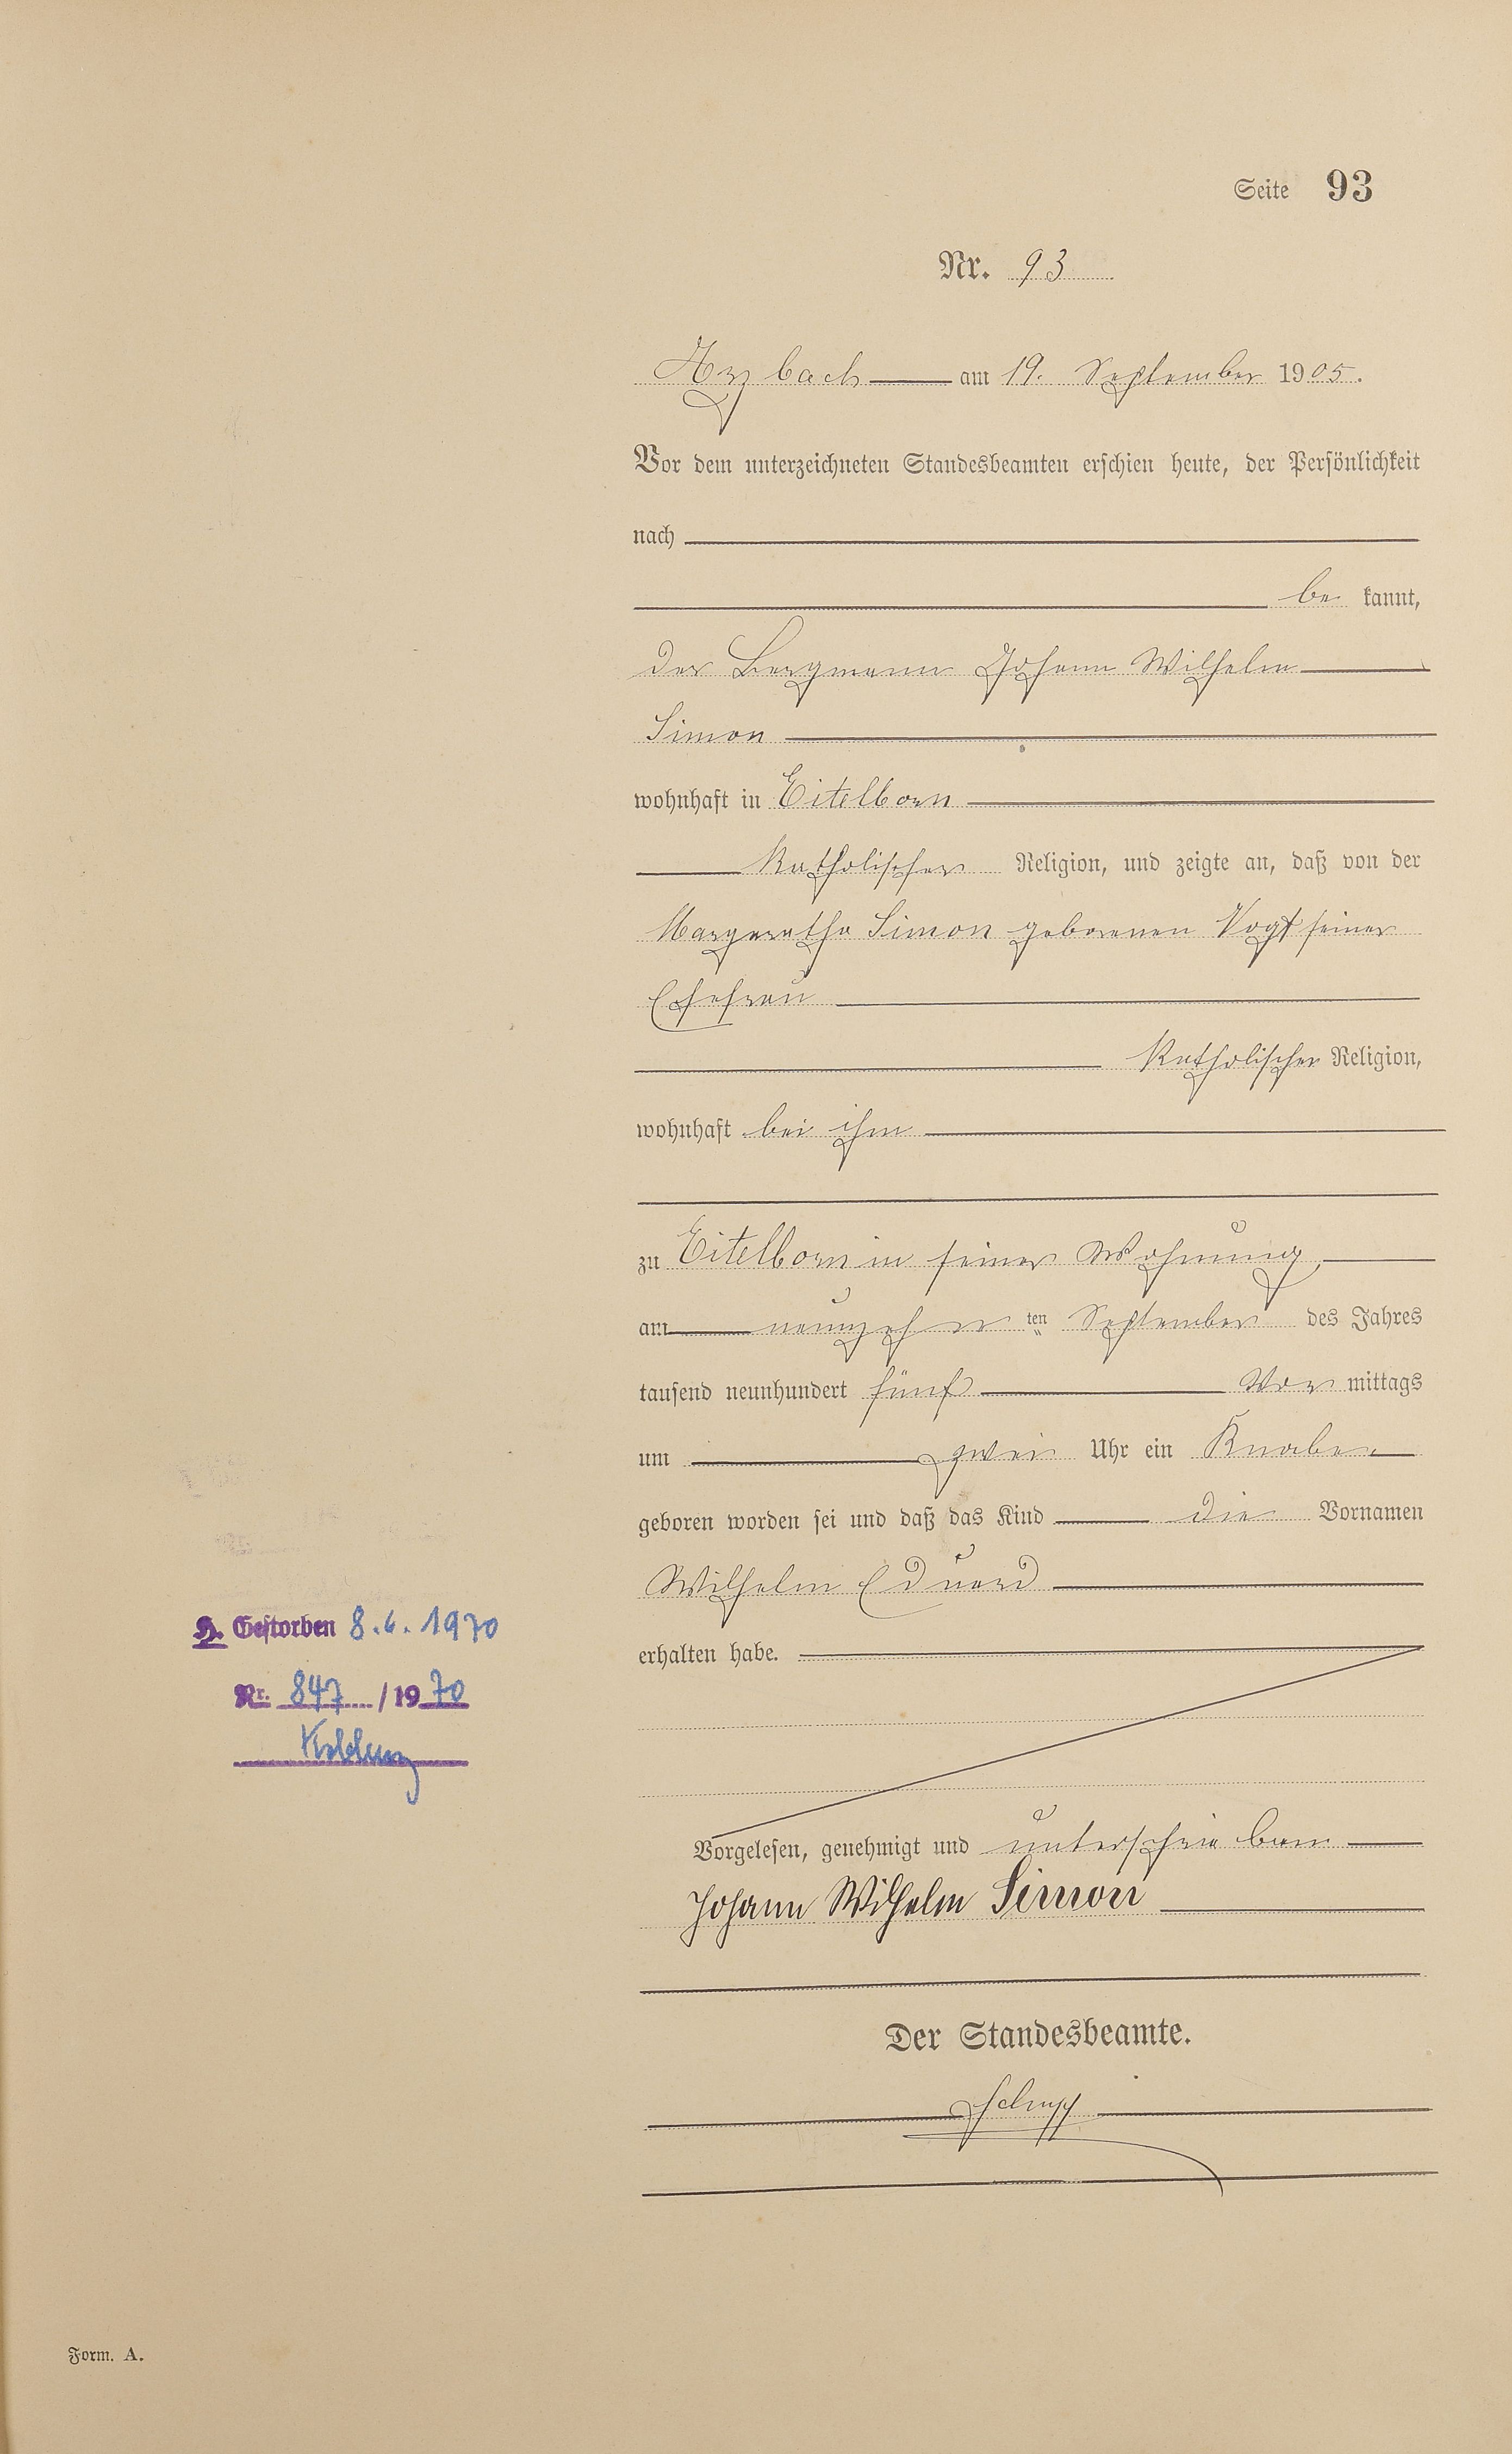 Seite 93
Nr. 93
Arzbach am 19. September 1905.
Vor dem unterzeichneten Standesbeamten erschien heute, der Persönlichkeit
nach
be kannt,
der Bergmann Johann Wilhelm
Simon
wohnhaft in Eitelborn
katholischer Religion, und zeigte an, daß von der
Margaretha Simon geborenen Vogt seiner
Ehefrau
katholischer Religion,
wohnhaft bei ihm
zu Eitelborn in seiner Wohnung
am neunzehn ten September des Jahres
tausend neunhundert fünf Vor mittags
um zwei Uhr ein Knabe
geboren worden sei und daß das Kind die Vornamen
Wilhelm Eduard
erhalten habe.
H. Gestorben 8.6.1970
Nr. 847 / 1970
Koblenz
Vorgelesen, genehmigt und unterschrieben
Johann Wilhelm Simon
Der Standesbeamte.
Form. A.